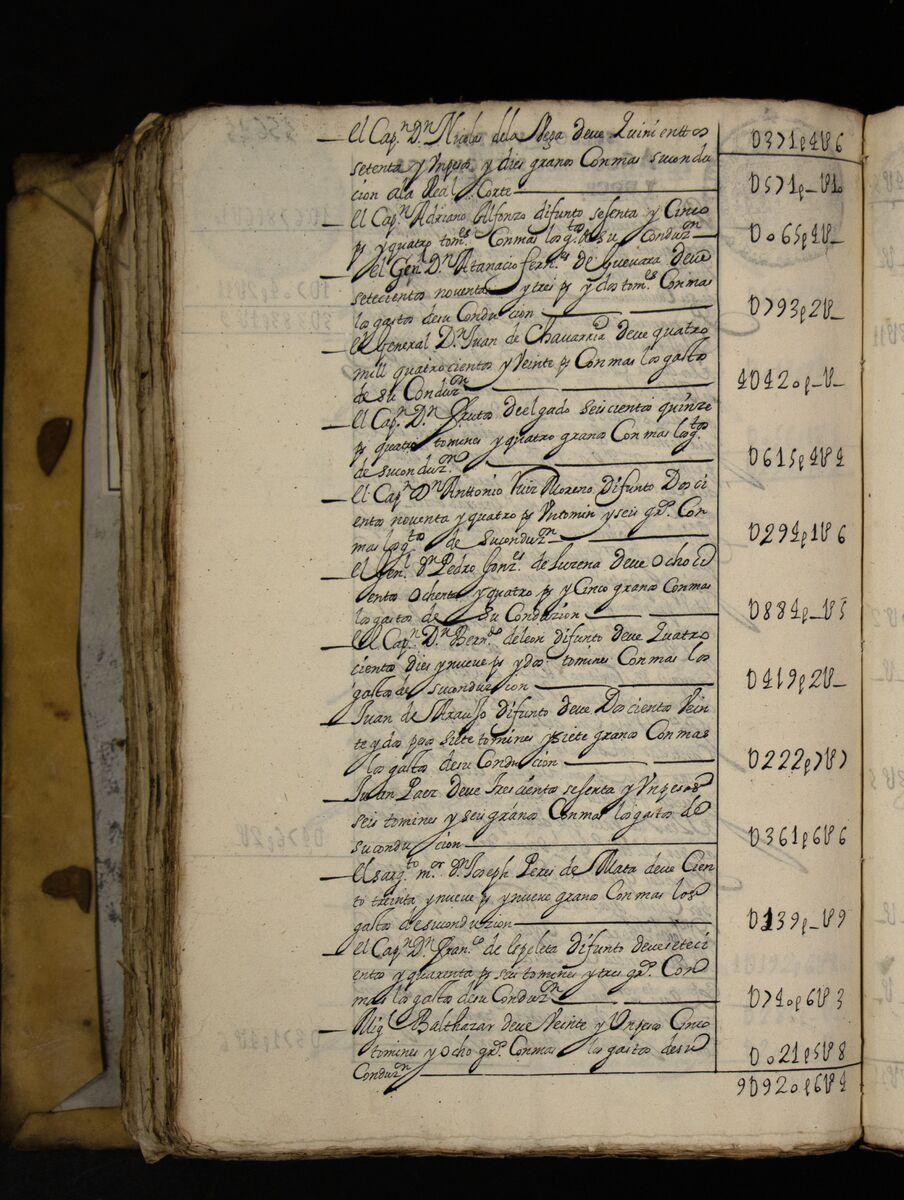 D371p4U6
El Cap.n D.n Nicolas dela Vega deve Quinienttos
setenta y Un pesos y dies granos Con mas su condu
cion ala Real Corte
D571p_U10
El Cap.n Adriano Alfonzo difunto sesenta y Cinco
ps y quatro tom.es Con mas los g.tos de su Conduz.on
Do65p4U_
el Gen.l D.n Atanacio fern.s de guevara deve
setecientos noventa y tres ps y dos tom.es Con mas
los gastos de su Conducion
D793p2U_
El General D.n Juan de Chavarria deve quatro
mill quatrocientos y Veinte ps Con mas los gastos
de su Conduz.on
4D42op_U_
El Cap.n D.n Frutos Delgado seiscientos quinze
ps quatro tomines y quatro granos Con mas los g.tos
de su conduz.on
D615p4U4
El Cap.n D.n Anttonio Ruiz Moreno Difunto Dosci
entos noventa y quatro ps Un tomin y seis gr.s Con
mas los g.tos de su conduz.on
D294p1U6
el Gen.l D.n Pedro Gonz.es de Lucena deve Ocho ci
entos Ochenta y quatro ps y Cinco granos Con mas
los gastos de su Conduzion
D884p_U5
el Cap.n D.n Bern.do de leon difunto deve Quatro
cientos dies y nueve ps y dos tomines Con mas los
gastos de su conduzion
D419p2U_
Juan de Araujo difunto deve Doscientos Vein
te y dos pesos siete tomines y siete granos Con mas
los gastos de su Conducion
D222p7U7
Juan Paez deve Trescientos sesenta y Un pesos
seis tomines y seis granos Con mas los gastos de
su conducion
D361p6U6
el sarg.to m.or D.n Joseph Peres de Mata deve Cien
to treinta y nueve ps y nueve granos Con mas los
gastos de su conduzion
D139p_U9
el Cap.n D.n Fran.co de Espeleta difunto deve seteci
entos y quarenta ps seis tomines y tres gr.s Con
mas los gastos de su Conduz.on
D74op6U3
Mig.l Balthazar deve Veinte y Un pesos Cinco
tomines y Ocho gr.s Con mas los gastos de su
Conduz.on
Do21p5U8
9D92op6U4